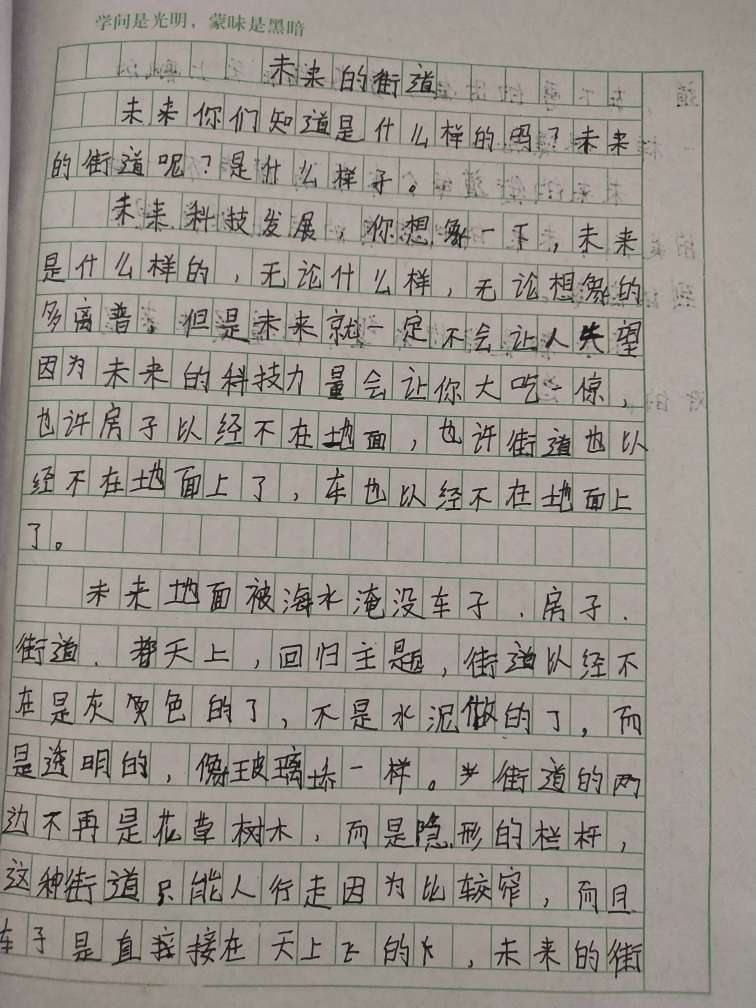 学问是光明，蒙昧是黑暗
未来的街道
未来你们知道是什么样的吗？未来
的街道呢？是什么样子。
未来科技发展，你想象一下，未来
是什么样的，无论什么样，无论想象的
多离普，但是未来就一定不会让人失望
因为未来的科技力量会让你大吃一惊，
也许房子以经不在地面，也许街道也以
经不在地面上了，车也以经不在地面上
了。
未来地面被海水淹没车子、房子、
街道、都天上，回归主题，街道以经不
在是灰色的了，不是水泥做的了，而
是透明的，像玻璃一样。街道的两
边不再是花草树木，而是隐形的栏杆，
这种街道只能人行走因为比较窄，而且
车子是直接接在天上飞的，未来的街